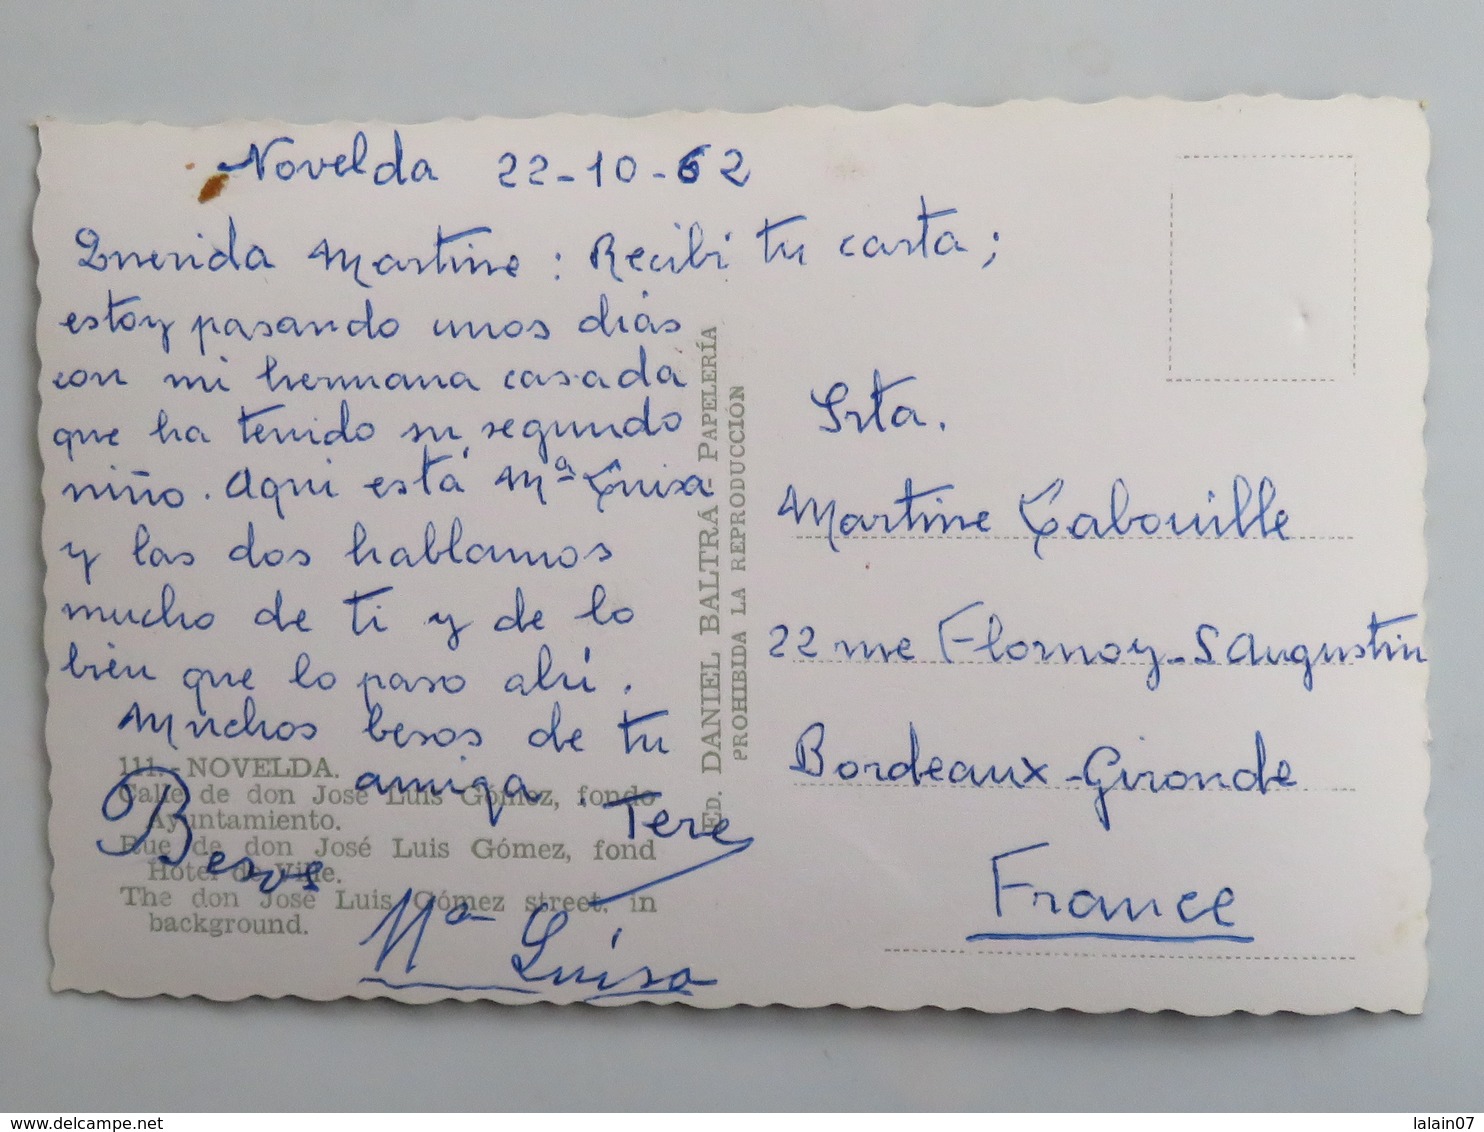 Novelda 22-10-62
Querida Martine: Recibí tu carta;
estoy pasando unos días
con mi hermana casada
que ha tenido su segundo
niño. Aqui está Mª Luisa
y las dos hablamos
mucho de ti y de lo
bien que lo paso ahí.
Muchos besos de tu
amiga. Tere
Besos
Mª Luisa
111.- NOVELDA.
Calle de don José Luis Gómez, fondo
Ayuntamiento.
Rue de don José Luis Gómez, fond
Hotel de Ville.
The don José Luis Gómez street, in
background.
ED. DANIEL BALTRÁ - PAPELERÍA
PROHIBIDA LA REPRODUCCIÓN
Srta.
Martine Labouille
22 rue Flornoy-S Augustin
Bordeaux-Gironde
France
delcampe.net
lalain07